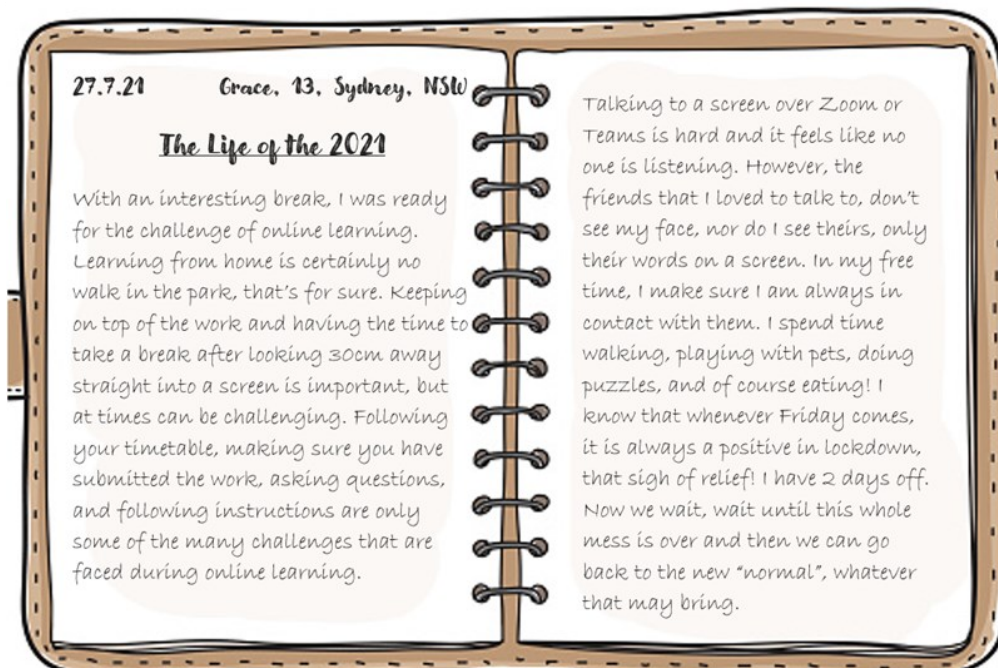 27.7.21 Grace, 13, Sydney, NSW
The Life of the 2021
With an interesting break, I was ready
for the challenge of online learning.
Learning from home is certainly no
walk in the park, that's for sure. Keeping
on top of the work and having the time to
take a break after looking 30cm away
straight into a screen is important, but
at times can be challenging. Following
your timetable, making sure you have
submitted the work, asking questions,
and following instructions are only
some of the many challenges that are
faced during online learning.
Talking to a screen over Zoom or
Teams is hard and it feels like no
one is listening. However, the
friends that I loved to talk to, don't
see my face, nor do I see theirs, only
their words on a screen. In my free
time, I make sure I am always in
contact with them. I spend time
walking, playing with pets, doing
puzzles, and of course eating! I
know that whenever Friday comes,
it is always a positive in lockdown,
that sigh of relief! I have 2 days off.
Now we wait, wait until this whole
mess is over and then we can go
back to the new "normal", whatever
that may bring.